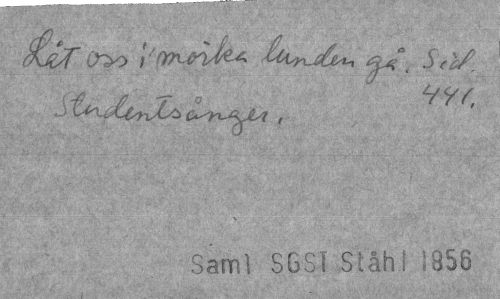 Låt oss i mörka lunden gå. Sid.
441.
Studentsånger.
Saml SGST Ståhl 1856